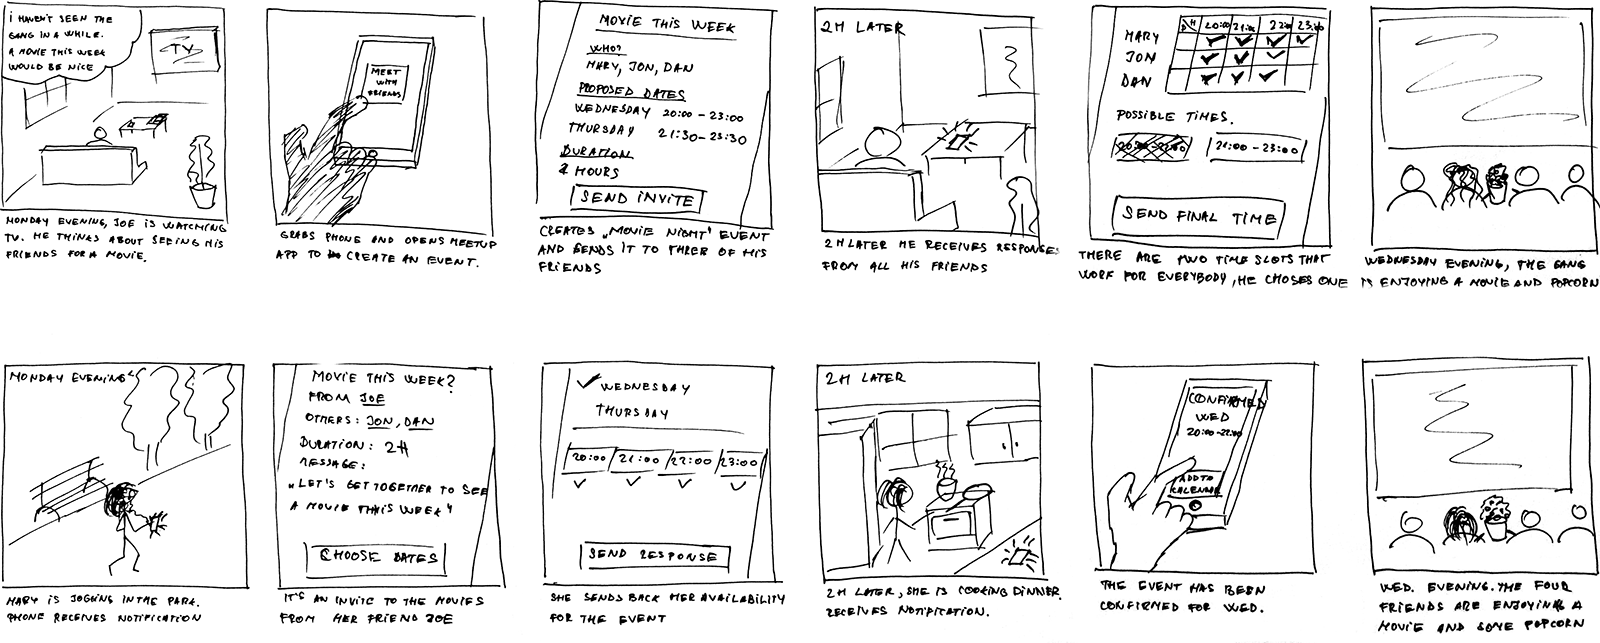 I HAVEN'T SEEN THE
GANG IN A WHILE.
A MOVIE THIS WEEK
WOULD BE NICE
TV
MONDAY EVENING, JOE IS WATCHING
TV. HE THINKS ABOUT SEEING HIS
FRIENDS FOR A MOVIE.
MEET
WITH
FRIENDS
GRABS PHONE AND OPENS MEETUP
APP TO CREATE AN EVENT.
MOVIE THIS WEEK
WHO?
MARY, JON, DAN
PROPOSED DATES
WEDNESDAY 20:00 - 23:00
THURSDAY 21:30 - 23:30
DURATION
2 HOURS
SEND INVITE
CREATES „MOVIE NIGHT" EVENT
AND SENDS IT TO THREE OF HIS
FRIENDS
2H LATER
2H LATER HE RECEIVES RESPONSES
FROM ALL HIS FRIENDS
20:00 21:00 22:00 23:00
MARY
JON
DAN
POSSIBLE TIMES.
20:00 - 22:00 21:00 - 23:00
SEND FINAL TIME
THERE ARE TWO TIME SLOTS THAT
WORK FOR EVERYBODY, HE CHOSES ONE
WEDNESDAY EVENING, THE GANG
IS ENJOYING A MOVIE AND POPCORN
MONDAY EVENING
MARY IS JOGGING IN THE PARK.
PHONE RECEIVES NOTIFICATION
MOVIE THIS WEEK?
FROM JOE
OTHERS: JON, DAN
DURATION: 2H
MESSAGE:
„LET'S GET TOGETHER TO SEE
A MOVIE THIS WEEK"
CHOOSE DATES
IT'S AN INVITE TO THE MOVIES
FROM HER FRIEND JOE
WEDNESDAY
THURSDAY
20:00 21:00 22:00 23:00
SEND RESPONSE
SHE SENDS BACK HER AVAILABILITY
FOR THE EVENT
2H LATER
2H LATER, SHE IS COOKING DINNER.
RECEIVES NOTIFICATION.
CONFIRMED
WED
20:00 - 22:00
ADD TO
CALENDAR
THE EVENT HAS BEEN
CONFIRMED FOR WED.
WED. EVENING. THE FOUR
FRIENDS ARE ENJOYING A
MOVIE AND SOME POPCORN